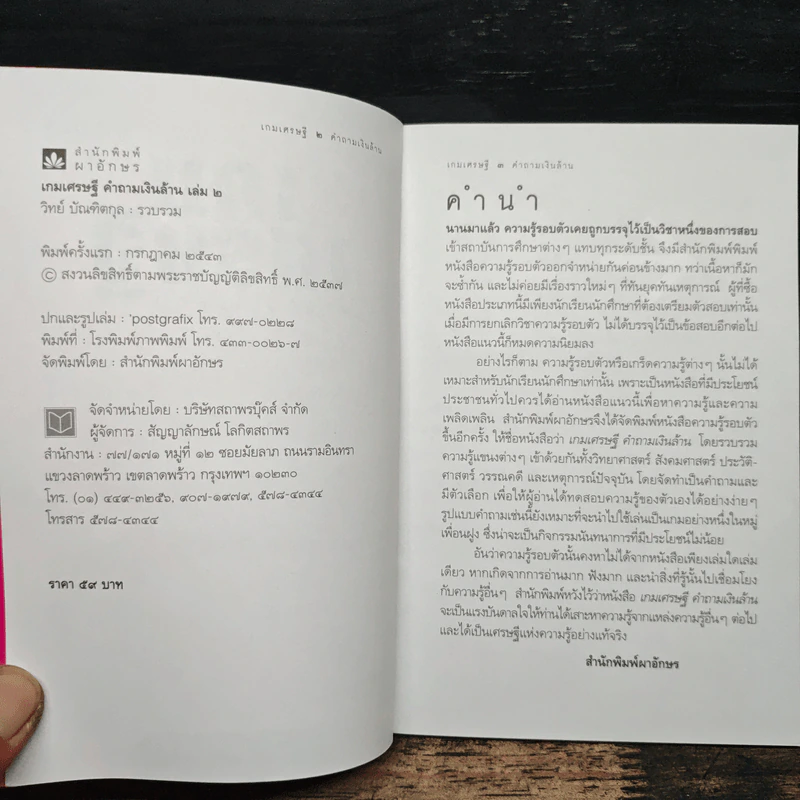 เกมเศรษฐี ๒ คำถามเงินล้าน
สำนักพิมพ์
ผาอักษร
เกมเศรษฐี คำถามเงินล้าน เล่ม ๒
วิทย์ บัณฑิตกุล : รวบรวม
พิมพ์ครั้งแรก : กรกฎาคม ๒๕๔๓
© สงวนลิขสิทธิ์ตามพระราชบัญญัติลิขสิทธิ์ พ.ศ. ๒๕๓๗
ปกและรูปเล่ม : 'postgrafix โทร. ๙๙๗-๐๒๒๘
พิมพ์ที่ : โรงพิมพ์ภาพพิมพ์ โทร. ๔๓๓-๐๐๒๖-๗
จัดพิมพ์โดย : สำนักพิมพ์ผาอักษร
จัดจำหน่ายโดย : บริษัทสถาพรบุ๊คส์ จำกัด
ผู้จัดการ : สัญญาลักษณ์ โลกิตสถาพร
สำนักงาน : ๗๗/๑๗๑ หมู่ที่ ๑๒ ซอยมัยลาภ ถนนรามอินทรา
แขวงลาดพร้าว เขตลาดพร้าว กรุงเทพฯ ๑๐๒๓๐
โทร. (๐๑) ๔๔๙-๓๒๕๖, ๙๐๗-๑๙๗๙, ๕๗๘-๔๓๔๔
โทรสาร ๕๗๘-๔๓๔๔
ราคา ๕๙ บาท
เกมเศรษฐี ๓ คำถามเงินล้าน
คำนำ
นานมาแล้ว ความรู้รอบตัวเคยถูกบรรจุไว้เป็นวิชาหนึ่งของการสอบ
เข้าสถาบันการศึกษาต่างๆ แทบทุกระดับชั้น จึงมีสำนักพิมพ์พิมพ์
หนังสือความรู้รอบตัวออกจำหน่ายกันค่อนข้างมาก ทว่าเนื้อหาก็มัก
จะซ้ำกัน และไม่ค่อยมีเรื่องราวใหม่ๆ ที่ทันยุคทันเหตุการณ์ ผู้ที่ซื้อ
หนังสือประเภทนี้มีเพียงนักเรียนนักศึกษาที่ต้องเตรียมตัวสอบเท่านั้น
เมื่อมีการยกเลิกวิชาความรู้รอบตัว ไม่ได้บรรจุไว้เป็นข้อสอบอีกต่อไป
หนังสือแนวนี้ก็หมดความนิยมลง
อย่างไรก็ตาม ความรู้รอบตัวหรือเกร็ดความรู้ต่างๆ นั้นไม่ได้
เหมาะสำหรับนักเรียนนักศึกษาเท่านั้น เพราะเป็นหนังสือที่มีประโยชน์
ประชาชนทั่วไปควรได้อ่านหนังสือแนวนี้เพื่อหาความรู้และความ
เพลิดเพลิน สำนักพิมพ์ผาอักษรจึงได้จัดพิมพ์หนังสือความรู้รอบตัว
ขึ้นอีกครั้ง ให้ชื่อหนังสือว่า เกมเศรษฐี คำถามเงินล้าน โดยรวบรวม
ความรู้แขนงต่างๆ เข้าด้วยกันทั้งวิทยาศาสตร์ สังคมศาสตร์ ประวัติ-
ศาสตร์ วรรณคดี และเหตุการณ์ปัจจุบัน โดยจัดทำเป็นคำถามและ
มีตัวเลือก เพื่อให้ผู้อ่านได้ทดสอบความรู้ของตัวเองได้อย่างง่ายๆ
รูปแบบคำถามเช่นนี้ยังเหมาะที่จะนำไปใช้เล่นเป็นเกมอย่างหนึ่งในหมู่
เพื่อนฝูง ซึ่งน่าจะเป็นกิจกรรมนันทนาการที่มีประโยชน์ไม่น้อย
อันว่าความรู้รอบตัวนั้นคงหาไม่ได้จากหนังสือเพียงเล่มใดเล่ม
เดียว หากเกิดจากการอ่านมาก ฟังมาก และนำสิ่งที่รู้นั้นไปเชื่อมโยง
กับความรู้อื่นๆ สำนักพิมพ์หวังไว้ว่าหนังสือ เกมเศรษฐี คำถามเงินล้าน
จะเป็นแรงบันดาลใจให้ท่านได้เสาะหาความรู้จากแหล่งความรู้อื่นๆ ต่อไป
และได้เป็นเศรษฐีแห่งความรู้อย่างแท้จริง
สำนักพิมพ์ผาอักษร